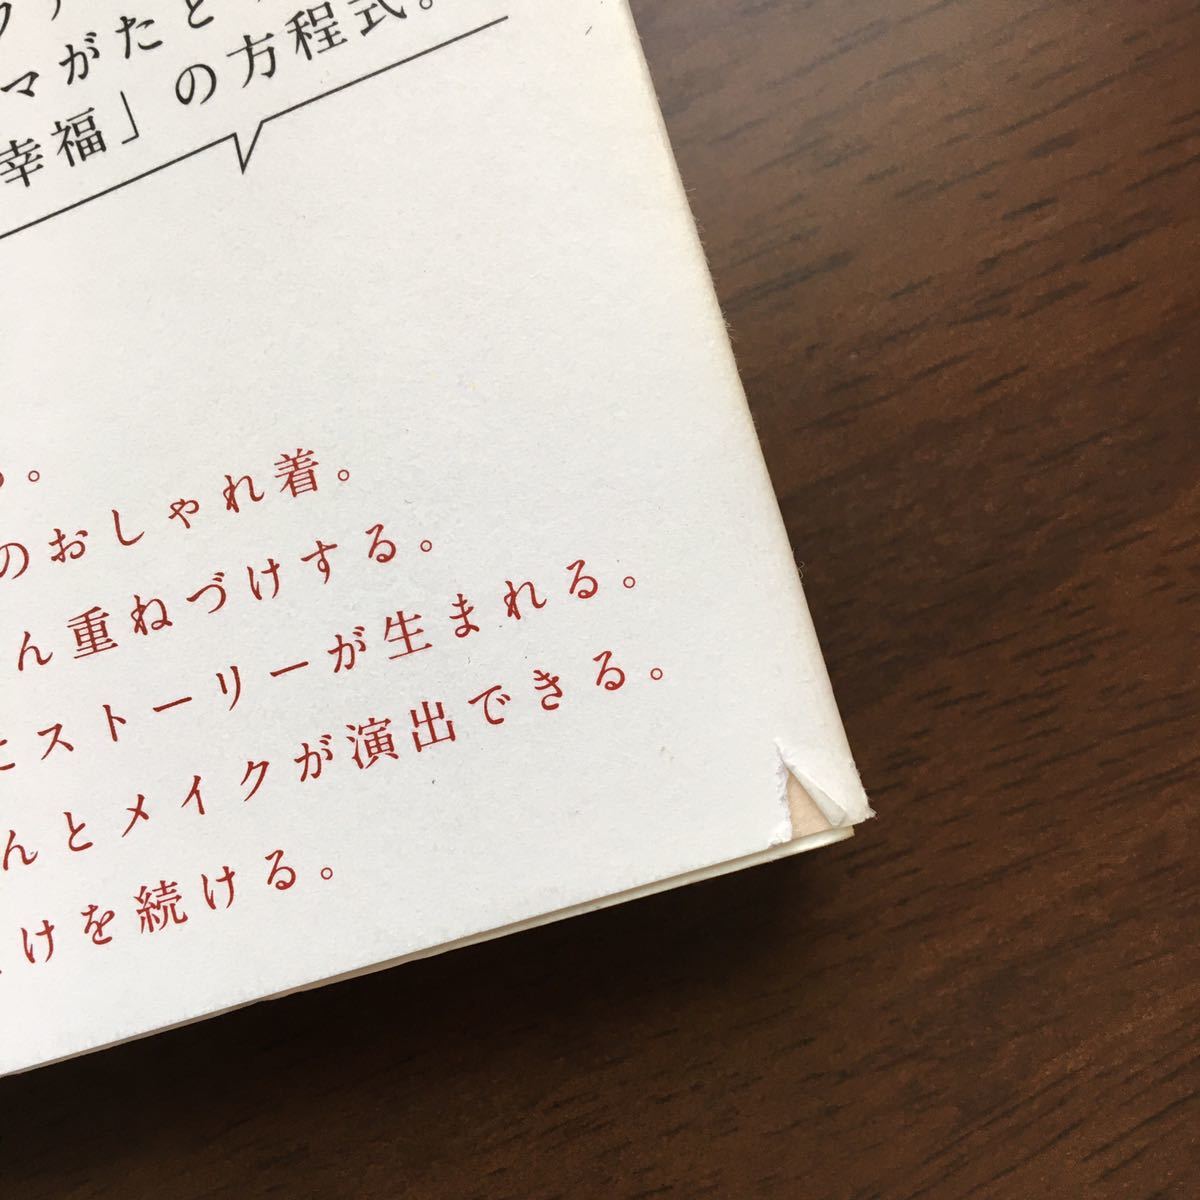 マがたと
幸福」の方程式。
る。
のおしゃれ着。
ん重ねづけする。
ストーリーが生まれる。
んとメイクが演出できる。
けを続ける。